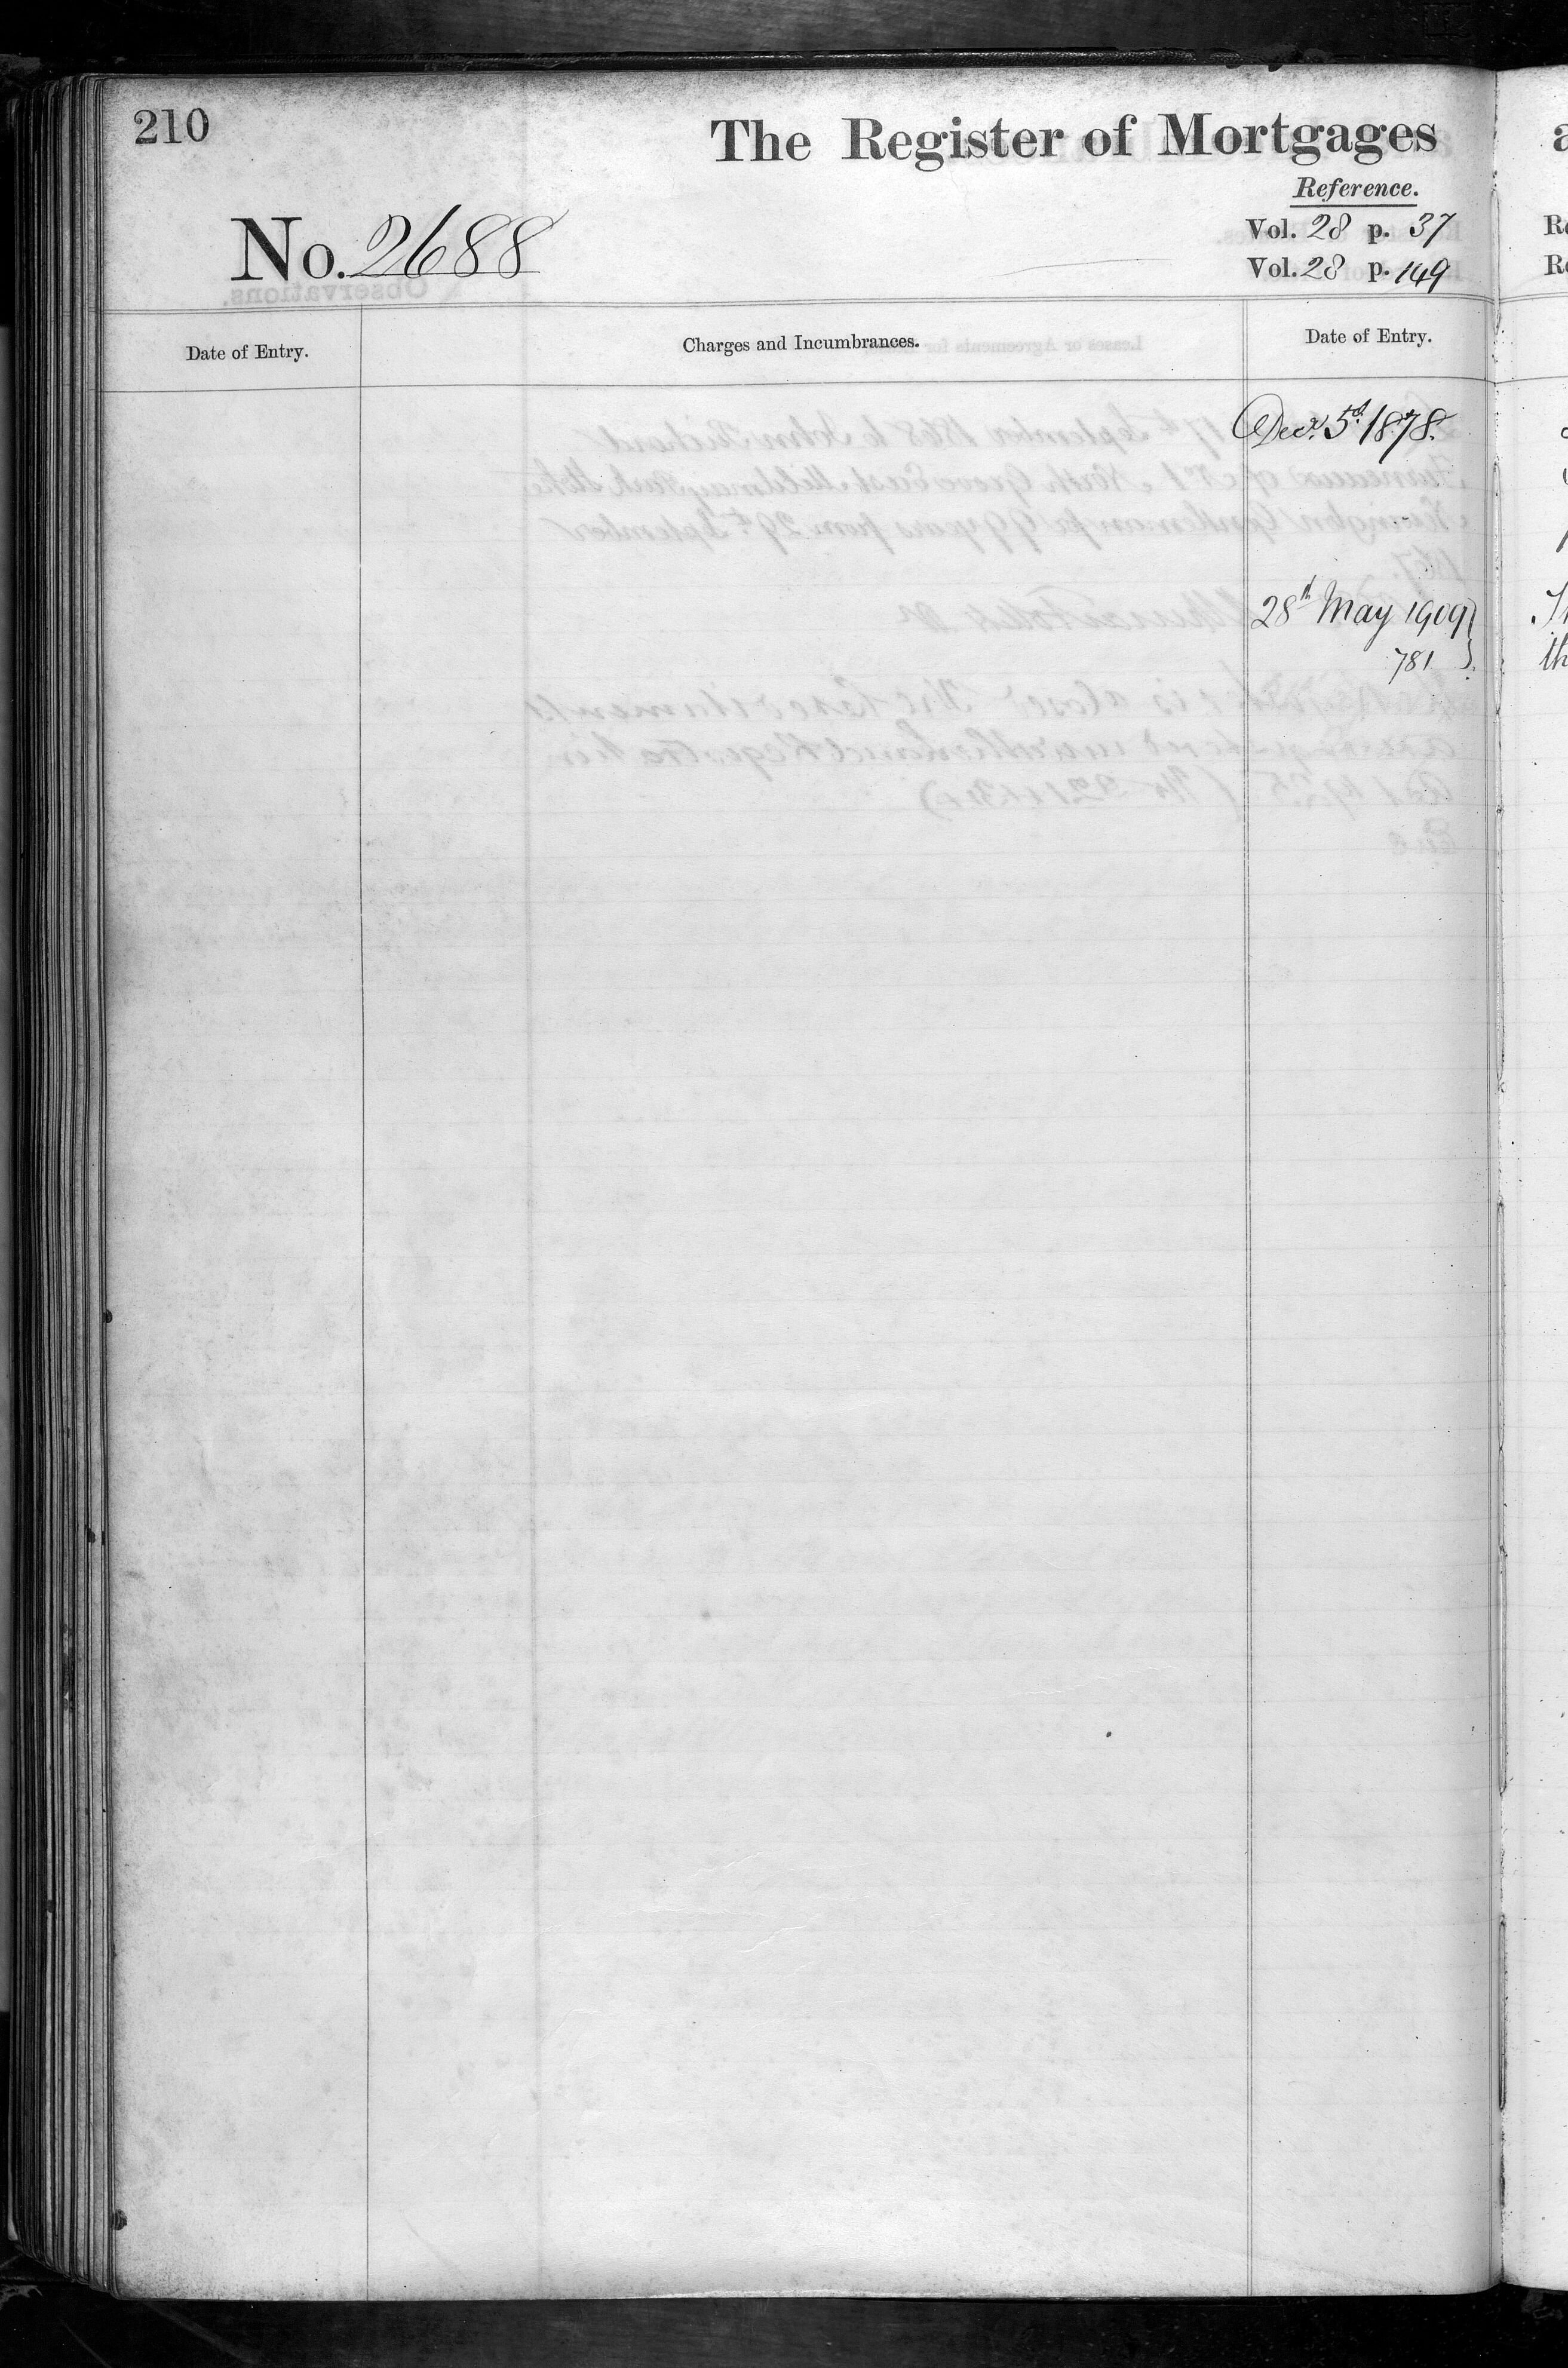 210
The Register of Mortgages
Reference.
No. 2688
Vol. 28 p. 37
Vol. 28 p. 149
Date of Entry.
Charges and Incumbrances.
Date of Entry.
Decr. 5d. 1878.
28th May 1909
781